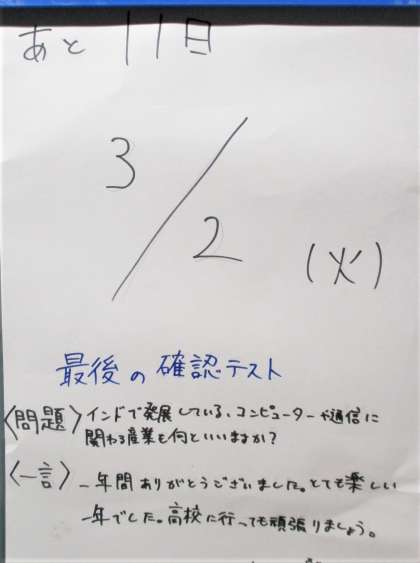 あと 11日
3/2 (火)
最後の確認テスト
〈問題〉インドで発展している、コンピューターや通信に
関わる産業を何といいますか?
〈一言〉一年間ありがとうございました。とても楽しい
一年でした。高校に行っても頑張りましょう。